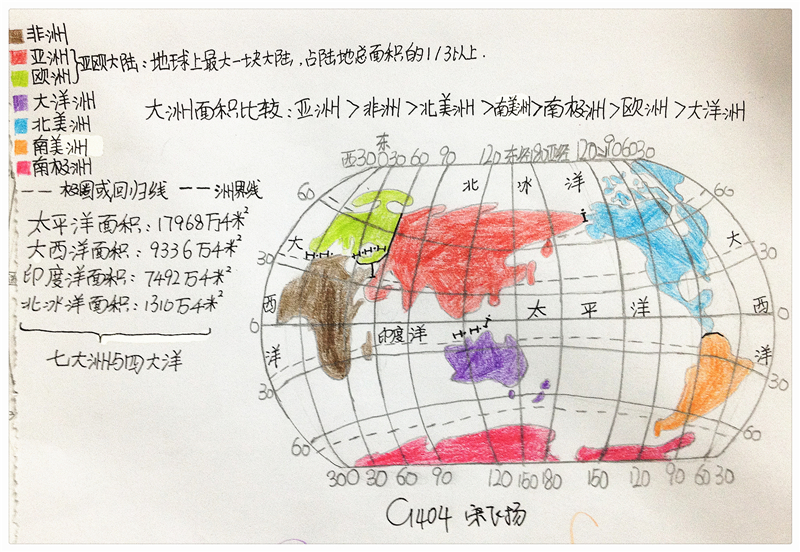 非洲
亚洲
欧洲
亚欧大陆:地球上最大一块大陆,占陆地总面积的1/3以上.
大洋洲
北美洲
南美洲
南极洲
大洲面积比较:亚洲>非洲>北美洲>南美洲>南极洲>欧洲>大洋洲
-- 极圈或回归线 -- 洲界线
太平洋面积:17968万千米²
大西洋面积:9336万千米²
印度洋面积:7492万千米²
北冰洋面积:1310万千米²
七大洲与四大洋
东
西 30 0 30 60 90 120 180 120 90 60 30
60 北冰洋 60
30 大 大 30
西 太平洋 西 0
印度洋
洋 洋
30 30
60 60
30 0 30 60 90 120 160 180 150 120 90 60 30
G1404